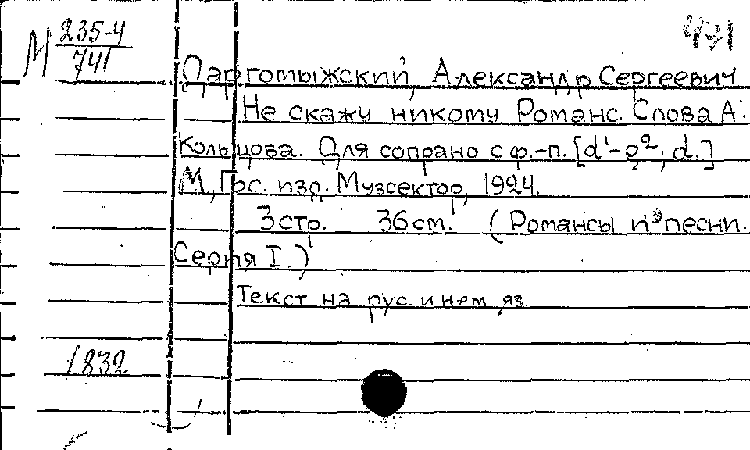 М 235-4
741
Даргомыжский, Александр Сергеевич
Не скажу никому Романс. Слова А.
Кольцова. Для сопрано с ф.-п. [d¹-g², d.]
М., Гос. изд. Музсектор, 1924.
3 стр. 36 см. (Романсы и песни.
Серия I.)
Текст на рус. и нем. яз.
1832